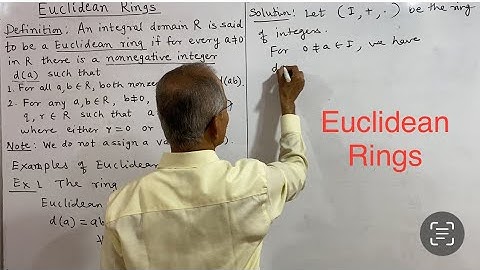 Euclidean Rings
Definition: An integral domain R is said
to be a Euclidean ring if for every a≠0
in R there is a nonnegative integer
d(a) such that
1. For all a,b∈R, both nonze d(ab).
2. For any a,b∈R, b≠0,
q, r∈R such that a
where either r=0 or
Note: We do not assign a va
Examples of Euclidean
Ex 1. The ring
Euclidean
d(a) = ab
Solution: Let (I, +, ·) be the ring
of integers.
For 0≠a∈I, we have
d
Euclidean
Rings